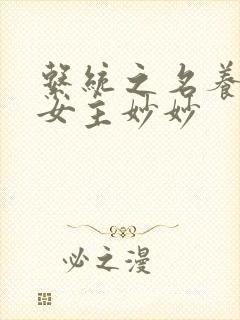 繫統之名養
女主妙妙
必之漫